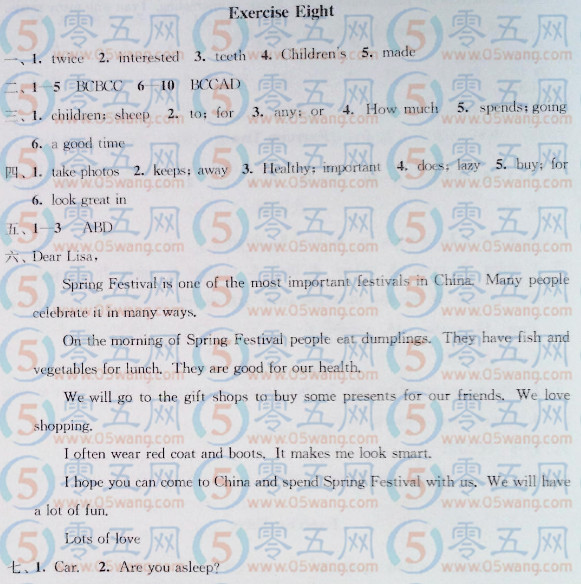 Exercise Eight
一、1. twice 2. interested 3. teeth 4. Children's 5. made
二、1—5 BCBCC 6—10 BCCAD
三、1. children; sheep 2. to; for 3. any; or 4. How much 5. spends; going
6. a good time
四、1. take photos 2. keeps; away 3. Healthy; important 4. does; lazy 5. buy; for
6. look great in
五、1—3 ABD
六、Dear Lisa,
Spring Festival is one of the most important festivals in China. Many people
celebrate it in many ways.
On the morning of Spring Festival people eat dumplings. They have fish and
vegetables for lunch. They are good for our health.
We will go to the gift shops to buy some presents for our friends. We love
shopping.
I often wear red coat and boots. It makes me look smart.
I hope you can come to China and spend Spring Festival with us. We will have
a lot of fun.
Lots of love
七、1. Car. 2. Are you asleep?
零五网
www.05wang.com